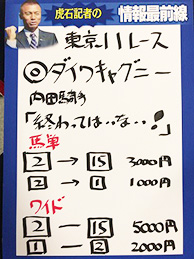 虎石記者の
情報最前線
東京11レース
◎ダイワキャグニー
内田騎手
「終わっては…な…い!」
馬単
2 → 15 3000円
2 → 1 1000円
ワイド
2 — 15 5000円
1 — 2 2000円